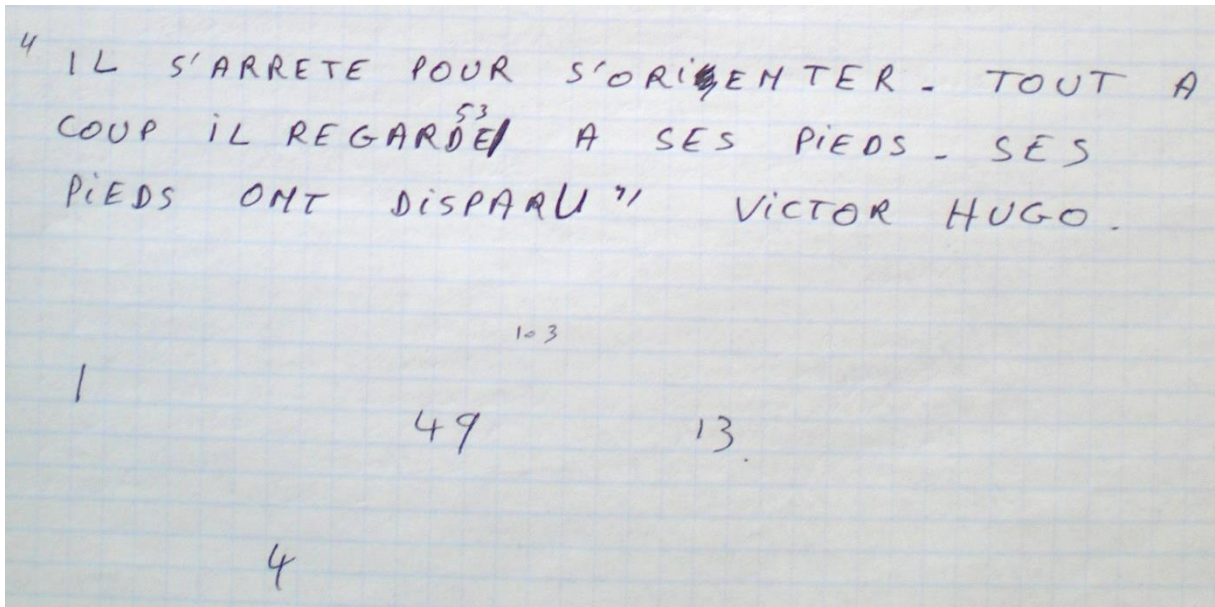 " IL S'ARRETE POUR S'ORIENTER. TOUT A
53
COUP IL REGARDE A SES PIEDS. SES
PIEDS ONT DISPARU " VICTOR HUGO.
103
1
49 13.
4